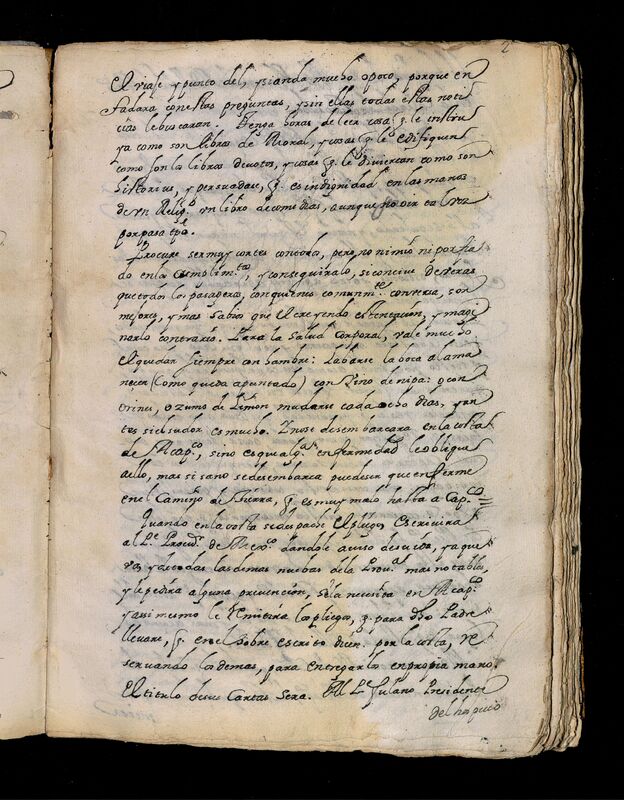 2
el viaje y punto del, y si anda mucho o poco, porque en
fadara con estas preguntas, y sin ellas todas estas noti
cias le buscaran. Tenga horas de leer cosa q. le instru
ya como son libros de Moral, y cosas q. le edifiquen
como son los libros devotos, y cosas q. le diviertan como son
historias, y persuadase, q. es indignidad en las manos
de un Relig.º un libro de comedias, aunque no sea en la voz
por passa tpo.
Procure ser muy cortes con todos, pero no nimio ni porfia
do en los cumplim.tos, y conseguiralo, si concive de veras
que todos los pasageros, con quienes comunm.te conversa, son
mejores, y mas sabios que el creyendo esto en equon, y magi
narlo contrario. Para la Salud Corporal, vale mucho
el quedar siempre con hambre: labarse la boca al ama
necer (Como queda apuntado) con Vino de nipa: o con
orines, o zumo de Limon mudarse cada ocho dias, y an
tes si el sudor es mucho. Y no se desembarcara en la costa
de Acap.co, sino es que alg.a enfermedad le obligue
a ello, mas si sano se desembarca puede ser que enferme
en el Camino de tierra, q. es muy malo hasta Acap.co
Quando en la costa se despache el pliego, escrivira
al P.e Procur.r de Mex.co dandole aviso de su ida, y a que
va, y de todas las demas nuebas de la Prov.a mas notables,
y le pedira alguna prevencion, si la necesita en Acap.co
y assi mesmo le Remitira los pliegos, q. para dho Padre
llevare, q. en el sobre escrito dicen. por la costa, Re
servando los demas, para entregarlos en propia mano.
El titulo de sus Cartas Sera. Al P.e fulano Presidente
del hospicio